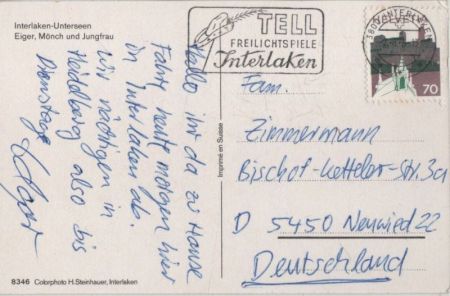 Interlaken-Unterseen
Eiger, Mönch und Jungfrau
TELL
FREILICHTSPIELE
Interlaken
3800 INTERLAKEN
70
Hallo ihr da zu Hause
Fahrt heute morgen hier
in Interlaken ab.
wir nächtigen in
Heidelberg also bis
Dienstag
Imprimé en Suisse
Fam.
Zimmermann
Bischof-Ketteler-Str. 3a
D 5450 Neuwied 22
Deutschland
8346 Colorphoto H. Steinhauer, Interlaken